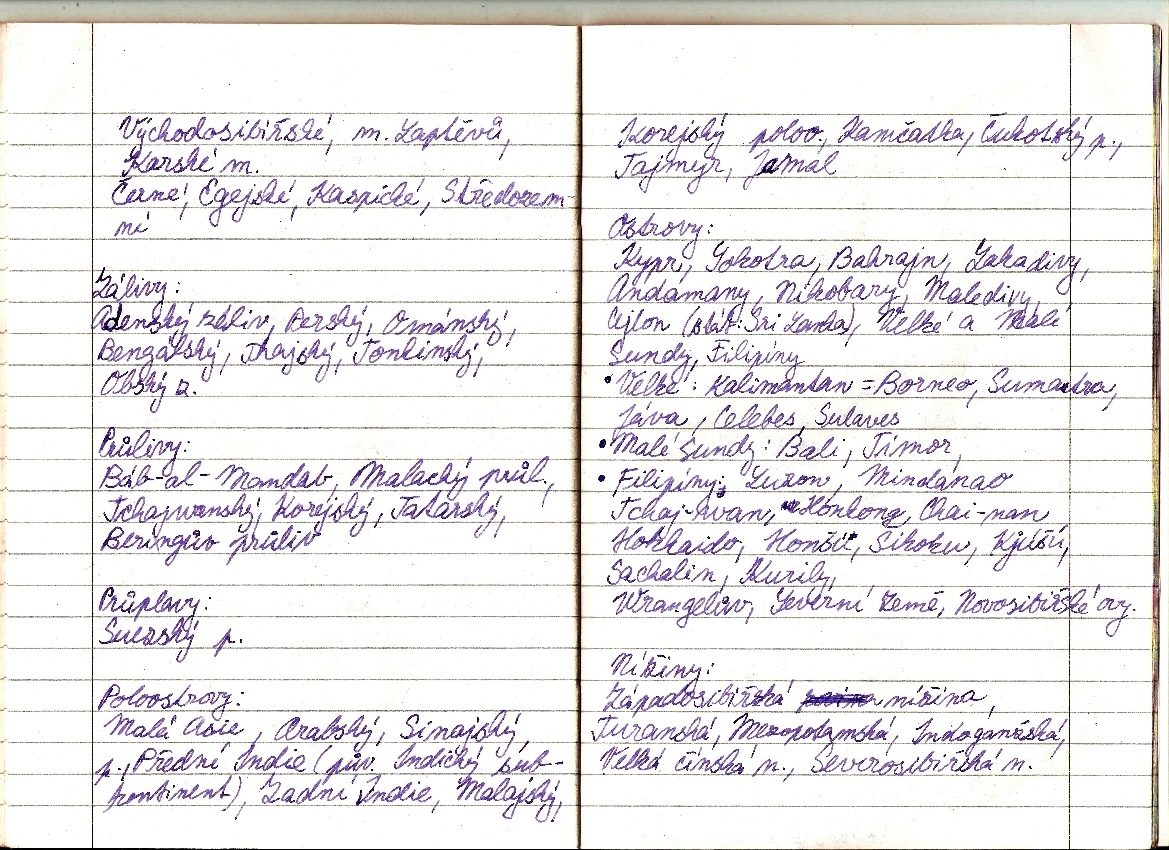 Východosibiřské, m. Laptěvů,
Karské m.
Černé, Egejské, Kaspické, Středozem-
ní
Zálivy:
Adenský záliv, Perský, Ománský,
Bengálský, Thajský, Tonkinský,
Obský z.
Průlivy:
Báb-al-Mandab, Malacký průl.,
Tchajwanský, Korejský, Tatarský,
Beringův průliv
Průplavy:
Suezský p.
Poloostrovy:
Malá Asie, Arabský, Sinajský
p., Přední Indie (pův. Indický sub-
kontinent), Zadní Indie, Malajský,
Korejský poloo, Kamčatka, Čukotský p.,
Tajmyr, Jamal
Ostrovy:
Kypr, Sokotra, Bahrajn, Lakadivy,
Andamany, Nikobary, Maledivy,
Cejlon (stát: Sri Lanka), Velké a Malé
Sundy, Filipíny
• Velké: Kalimantan = Borneo, Sumatra,
Jáva, Celebes, Sulaves
• Malé Sundy: Bali, Timor,
• Filipíny: Luzon, Mindanao
Tchaj-wan, Honkong, Chai-nan
Hokkaido, Honšú, Šikoku, Kjúšú,
Sachalin, Kurily,
Wrangelův, Severní Země, Novosibiřské ovy.
Nížiny:
Západosibiřská nížina,
Turanská, Mezopotamská, Indoganžská,
Velká čínská n., Severosibiřská n.